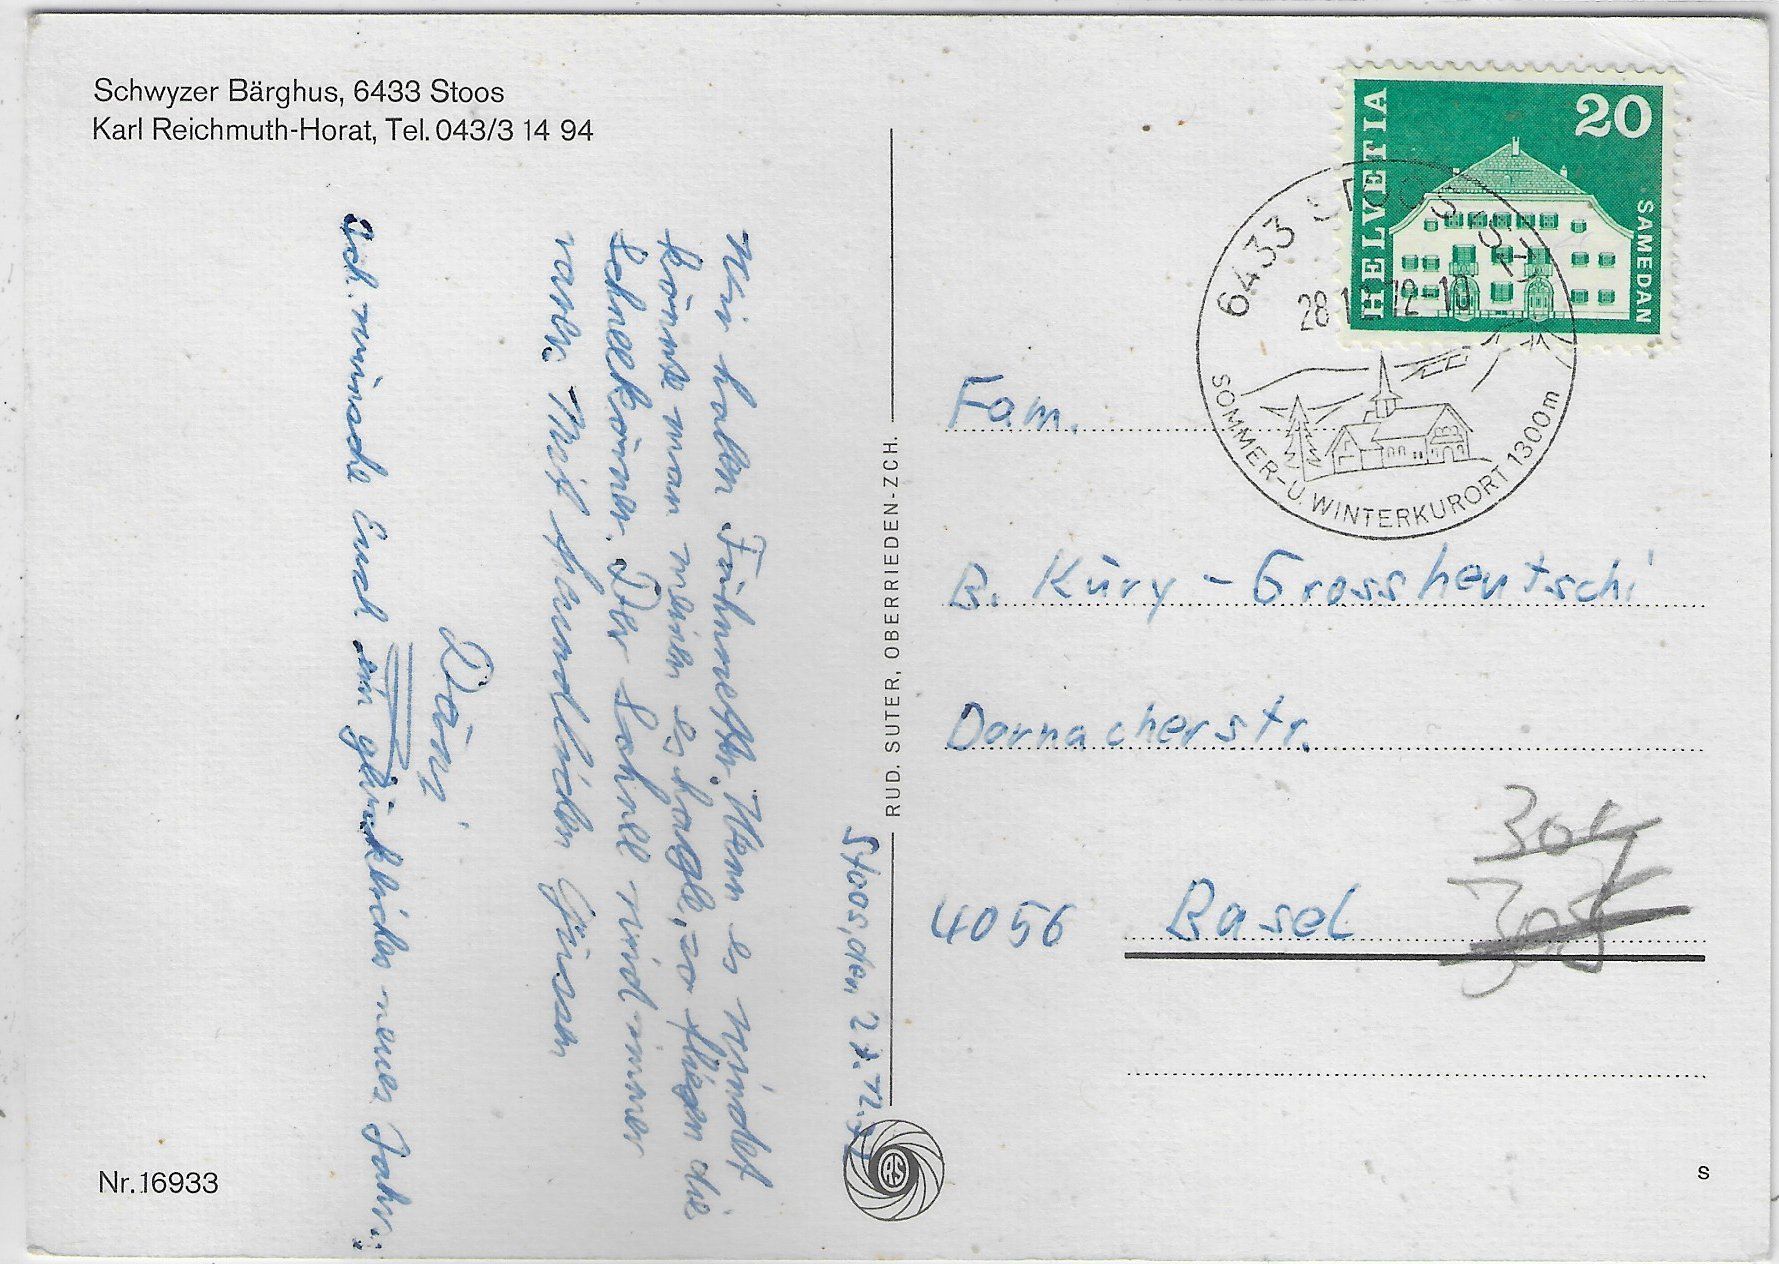 Schwyzer Bärghus, 6433 Stoos
Karl Reichmuth-Horat, Tel. 043/3 14 94
Stoos, den 27.12.72
Wir haben Föhnwetter. Wenn es windet
könnte man meinen es hagle, so fliegen die
Schneekörner. Der Schnee wird immer
rarer. Mit freundlichen Grüssen
Däni
Ich wünsche Euch ein glückliches neues Jahr.
RUD. SUTER, OBERRIEDEN-ZCH.
RS
HELVETIA
20
SAMEDAN
6433 STOOS SZ
28 12 72-10
SOMMER-U. WINTERKURORT 1300m
Fam.
B. Küry-Grossheutschi
Dornacherstr.
304
305
4056 Basel
Nr. 16933
s